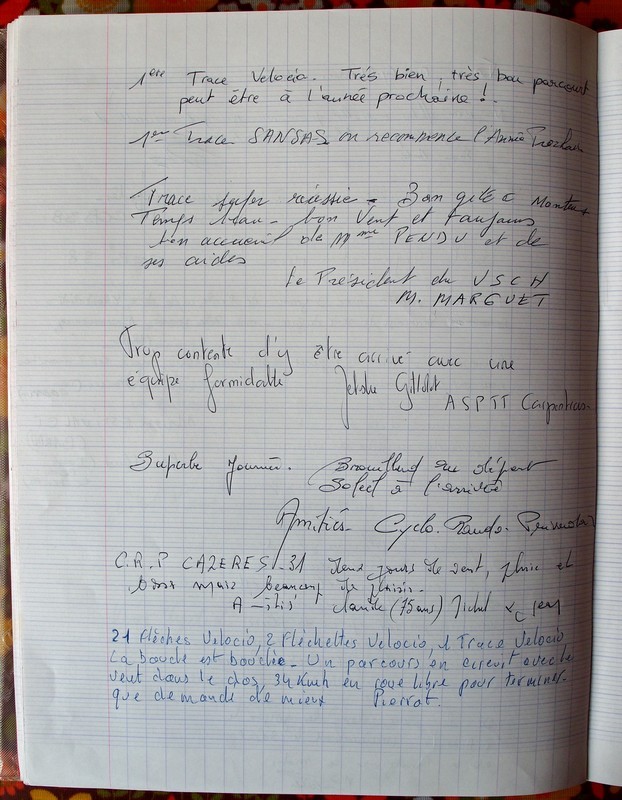 1ère Trace Velocio. Trés bien, très bon parcourt
peut être à l'année prochaine !.
1ère Trace SANSAS on recommence l'Année Prochaine
Trace super réussie - Bon gite à
Temps beau - bon vent et toujours
bon accueil de Mme PENDU et de
ses aides
Le Président du USCH
M. MARGUET
Trop contente d'y être arrivé avec une
équipe formidable
ASPTT Carpentras
Superbe Journée. Brouillard au départ
Soleil à l'arrivée
Amitiés - Cyclo-Rando-
C.R.P CAZERES-31 deux jours de vent, pluie et
mais beaucoup de plaisir.
Amitiés Claude (75 ans) Michel
21 flèches Velocio, 2 Fléchettes Velocio, 1 Trace Velocio
La boucle est bouclée. Un parcours en circuit avec le
vent dans le dos, 34 Kmh en roue libre pour terminer.
que demande de mieux Pierrot.